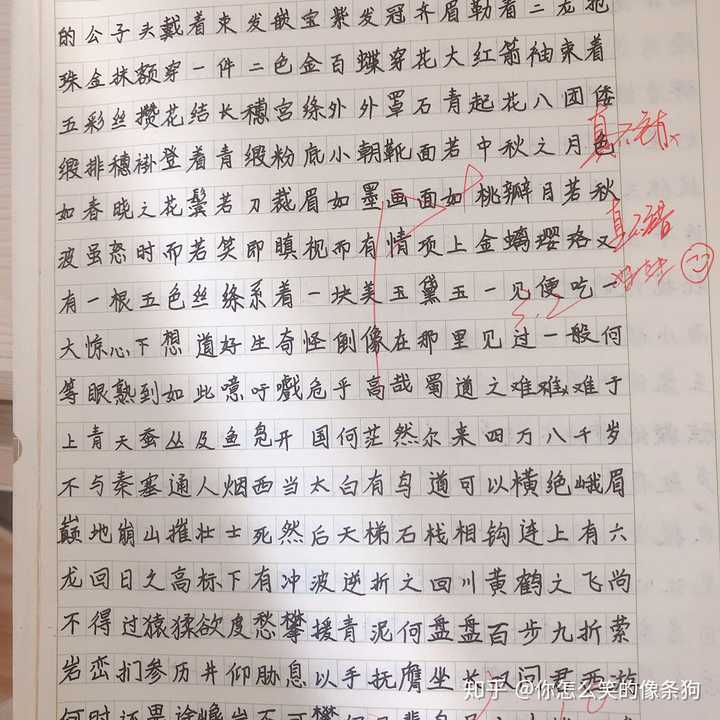 的公子头戴着束发嵌宝紫发冠齐眉勒着二龙抢
珠金抹额穿一件二色金百蝶穿花大红箭袖束着
五彩丝攒花结长穗宫绦外外罩石青起花八团倭
缎排穗褂登着青缎粉底小朝靴面若中秋之月色
真不错
如春晓之花鬓若刀裁眉如墨画面如桃瓣目若秋
波虽怒时而若笑即瞋视而有情项上金螭璎珞又
真不错
有一根五色丝绦系着一块美玉黛玉一见便吃一
大惊心下想道好生奇怪倒像在那里见过一般何
等眼熟到如此噫吁戏危乎高哉蜀道之难难难于
上青天蚕丛及鱼凫开国何茫然尔来四万八千岁
不与秦塞通人烟西当太白有鸟道可以横绝峨眉
巅地崩山摧壮士死然后天梯石栈相钩连上有六
龙回日之高标下有冲波逆折之回川黄鹤之飞尚
不得过猿猱欲度愁攀援青泥何盘盘百步九折萦
岩峦扪参历井仰胁息以手抚膺坐长叹问君西
何时还畏途巉岩不可攀
知乎 @你怎么笑的像条狗